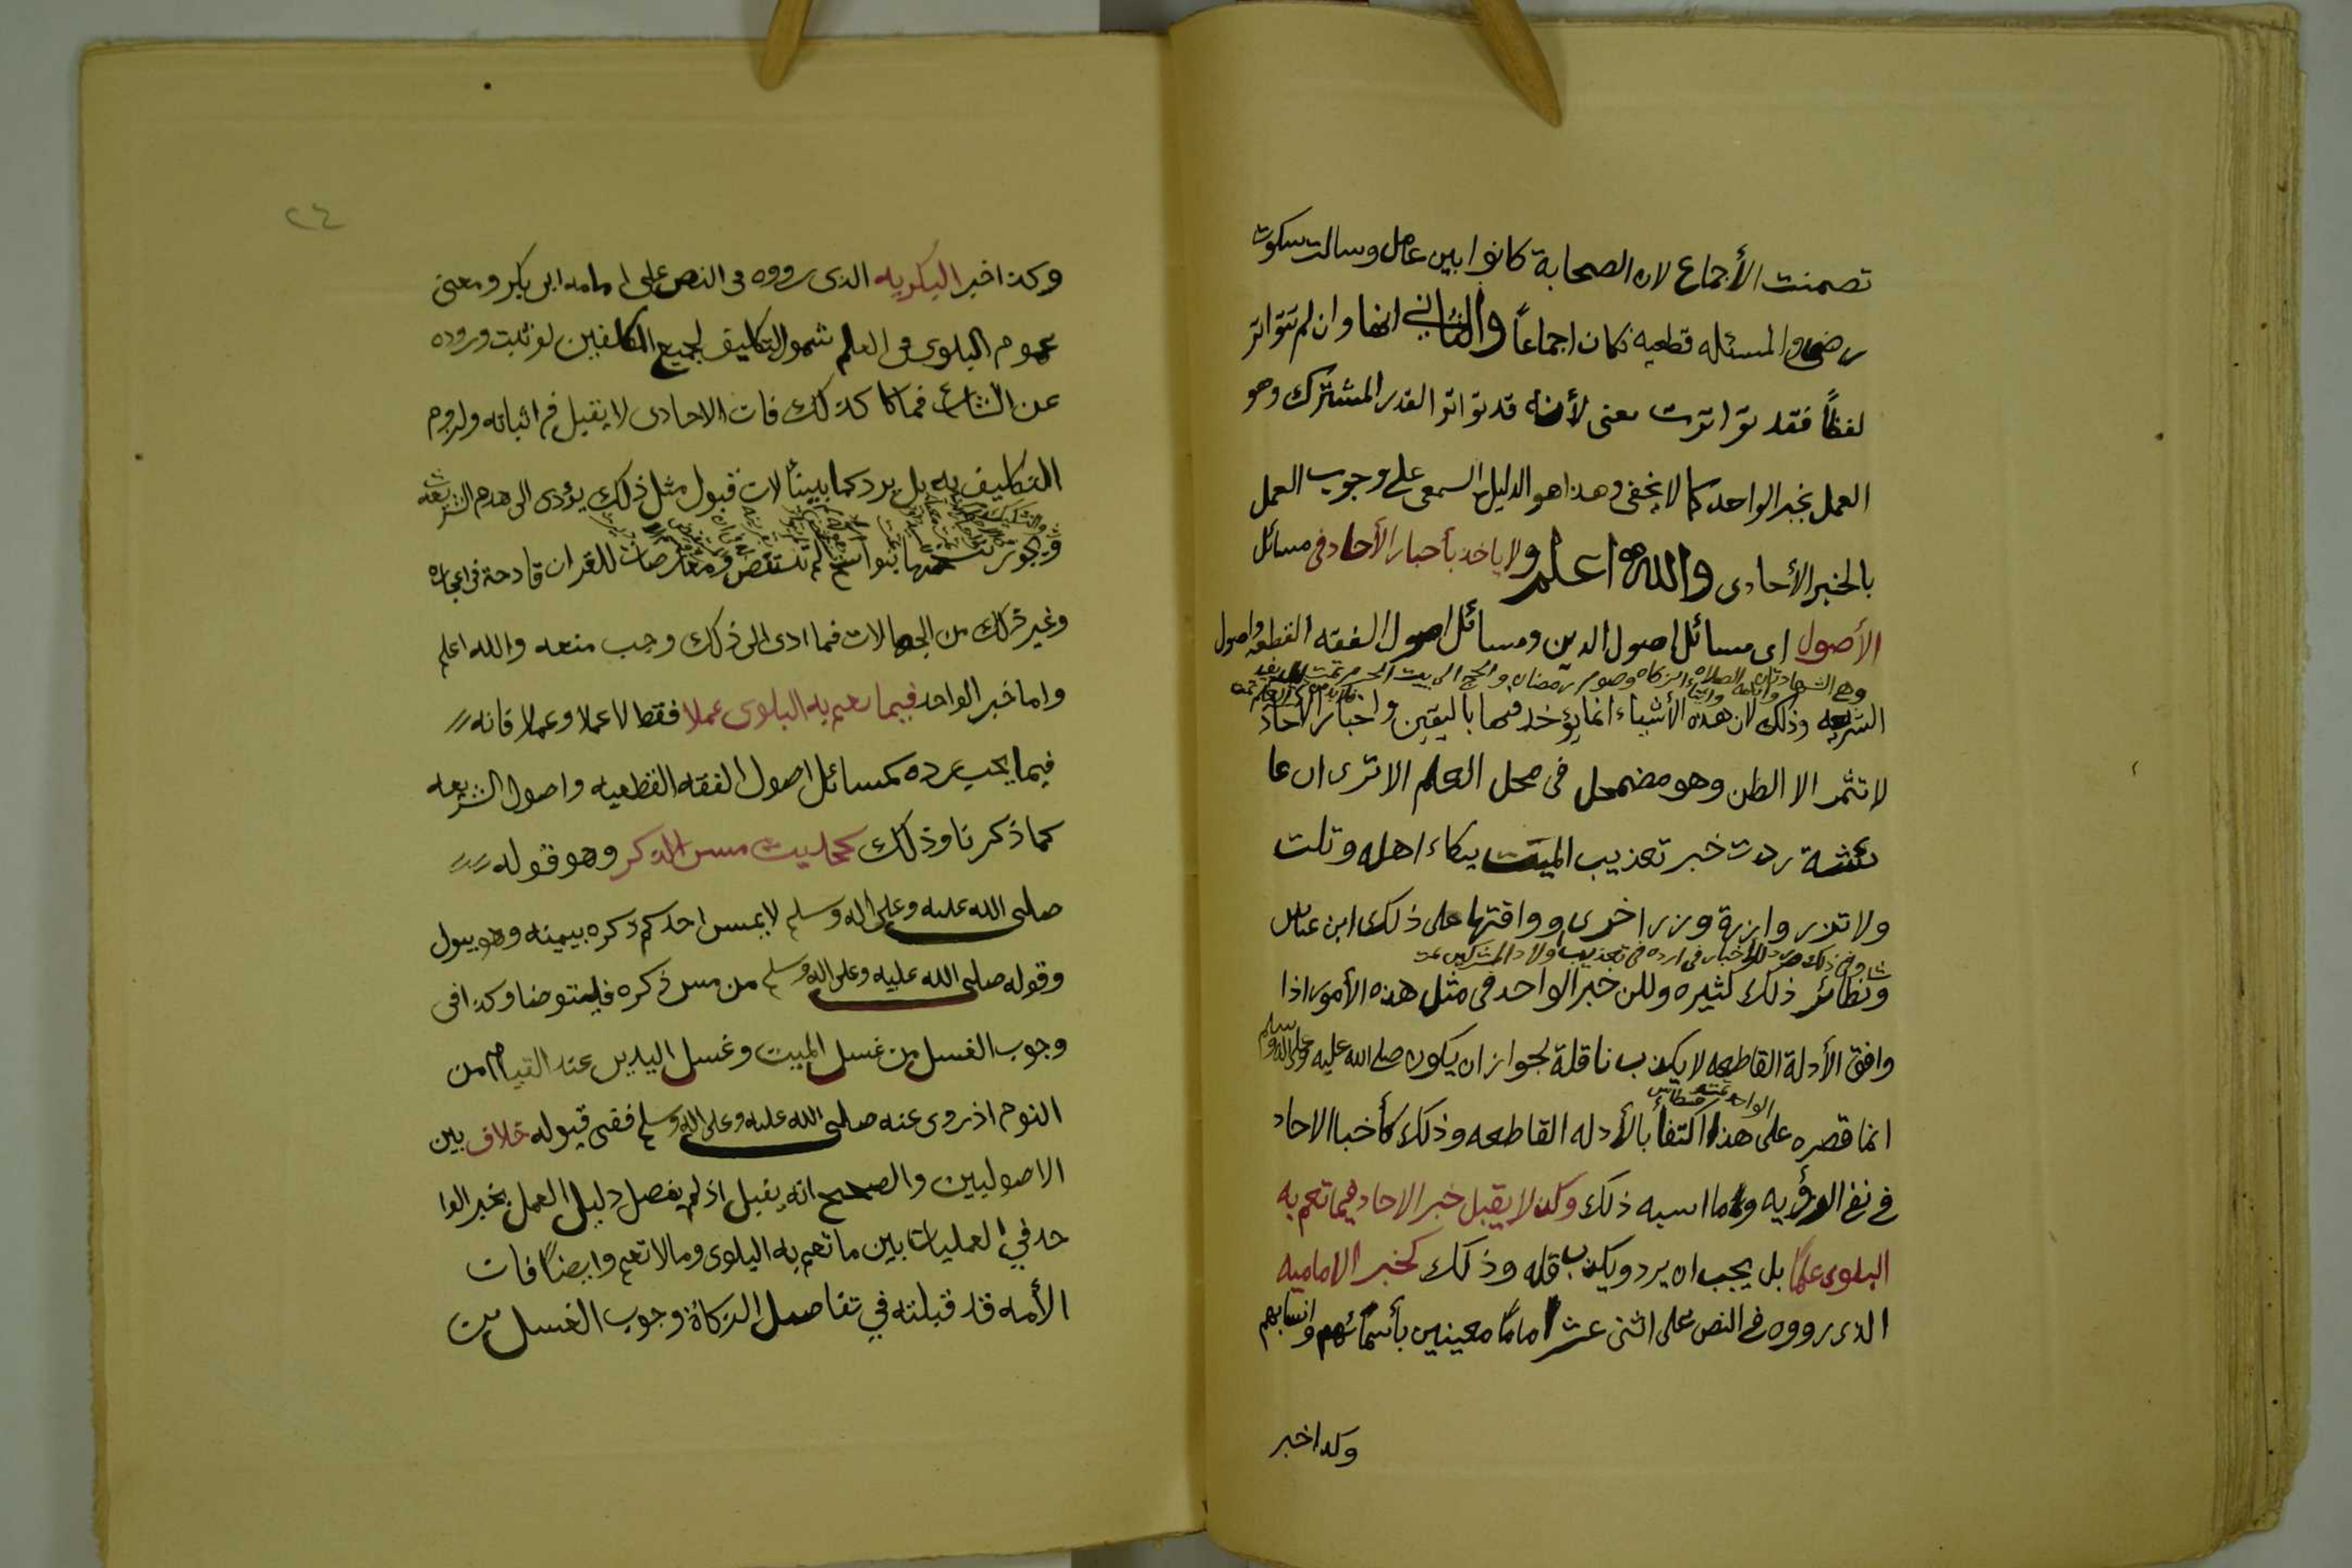 تضمنت الأجماع لان الصحابة كانوا بين عامل وسالت سكوت
رضى والمسئله قطعيه فكان اجماعاً والثاني انها وان لم تتواتر
لفظاً فقد تواترت معنى لأنه قد تواتر القدر المشترك وهو
العمل بخبر الواحد كما لا يخفى وهذا هو الدليل السمعى على وجوب العمل
بالخبر الأحادى والله اعلم ولا ياخذ بأخبار الأحاد فى مسائل
الأصول اى مسائل اصول الدين ومسائل اصول الفقه القطعيه واصول
وهي الشهادتان واقامه الصلاه وايتاء الزكاه وصوم رمضان والحج الى بيت الحرم تمت
الشريعه وذلك لان هذه الأشياء انما يؤخذ فيها باليقين واخبار الأحاد
لا تثمر الا الظن وهو مضمحل فى محل العلم الا ترى ان عا
ئشة ردت خبر تعذيب الميت ببكاء اهله وتلت
ولا تزر وازرة وزر اخرى ووافقتها على ذلك ابن عباس
وفى ذلك رد للأخبار فى تعذيب اولاد المشركين تمت
ونظائر ذلك كثيره ولكن خبر الواحد فى مثل هذه الأمور اذا
وافق الأدلة القاطعه لا يكذب ناقلة لجواز ان يكون صلى الله عليه وعلى اله وسلم
الواحد
انما قصره على هذا اكتفأ بالأدله القاطعه وذلك كأخبا الاحاد
في نفي الرؤيه وما اسبه ذلك وكذ لا يقبل خبر الاحاد فيما تعم به
البلوى علمًا بل يجب ان يرد ويكذب قله وذلك كخبر الاماميه
الذى رووه في النص على اثنى عشر امامًا معينين بأسمائهم وانسابهم
وكذا خبر
٢٤
وكذا خبر البكريه الذى رووه فى النص على امامه ابى بكر ومعنى
عموم البلوى فى العلم شمول التكليف لجميع المكلفين لو ثبت وروده
عن الشارع فما كا كذلك فان الاحادى لا يقبل فى اثباته ولزوم
التكليف به بل يرد كما بينأ لان قبول مثل ذلك يؤدى الى هدم الشريعه
وتجويز لم تستقص ومعارضات للقران قادحة فى اعجازه
وغير ذلك من الجهالات فما ادى الى ذلك وجب منعه والله اعلم
واما خبر الواحد فيما تعم به البلوى عملا فقط لا عملا وعملا فانه
فيما يجب يرده كمسائل اصول الفقه القطعيه واصول الشريعه
كما ذكرنا وذلك كحديث مس الذكر وهو قوله
صلى الله عليه وعلى اله وسلم لا يمسن احدكم ذكره بيمينه وهو يبول
وقوله صلى الله عليه وعلى اله وسلم من مس ذكره فليتوضا وكذا فى
وجوب الغسل من غسل الميت وغسل اليدين عند القيام من
النوم اذ روى عنه صلى الله عليه وعلى اله وسلم ففى قبوله خلاف بين
الاصوليين والصحيح انه يقبل اذ لم يفصل دليل العمل بخبر الوا
حد في العمليات بين ما تعم به البلوى وما لا تعم وايضاً فان
الأمه قد قبلته في تفاصيل الزكاة وجوب الغسل من